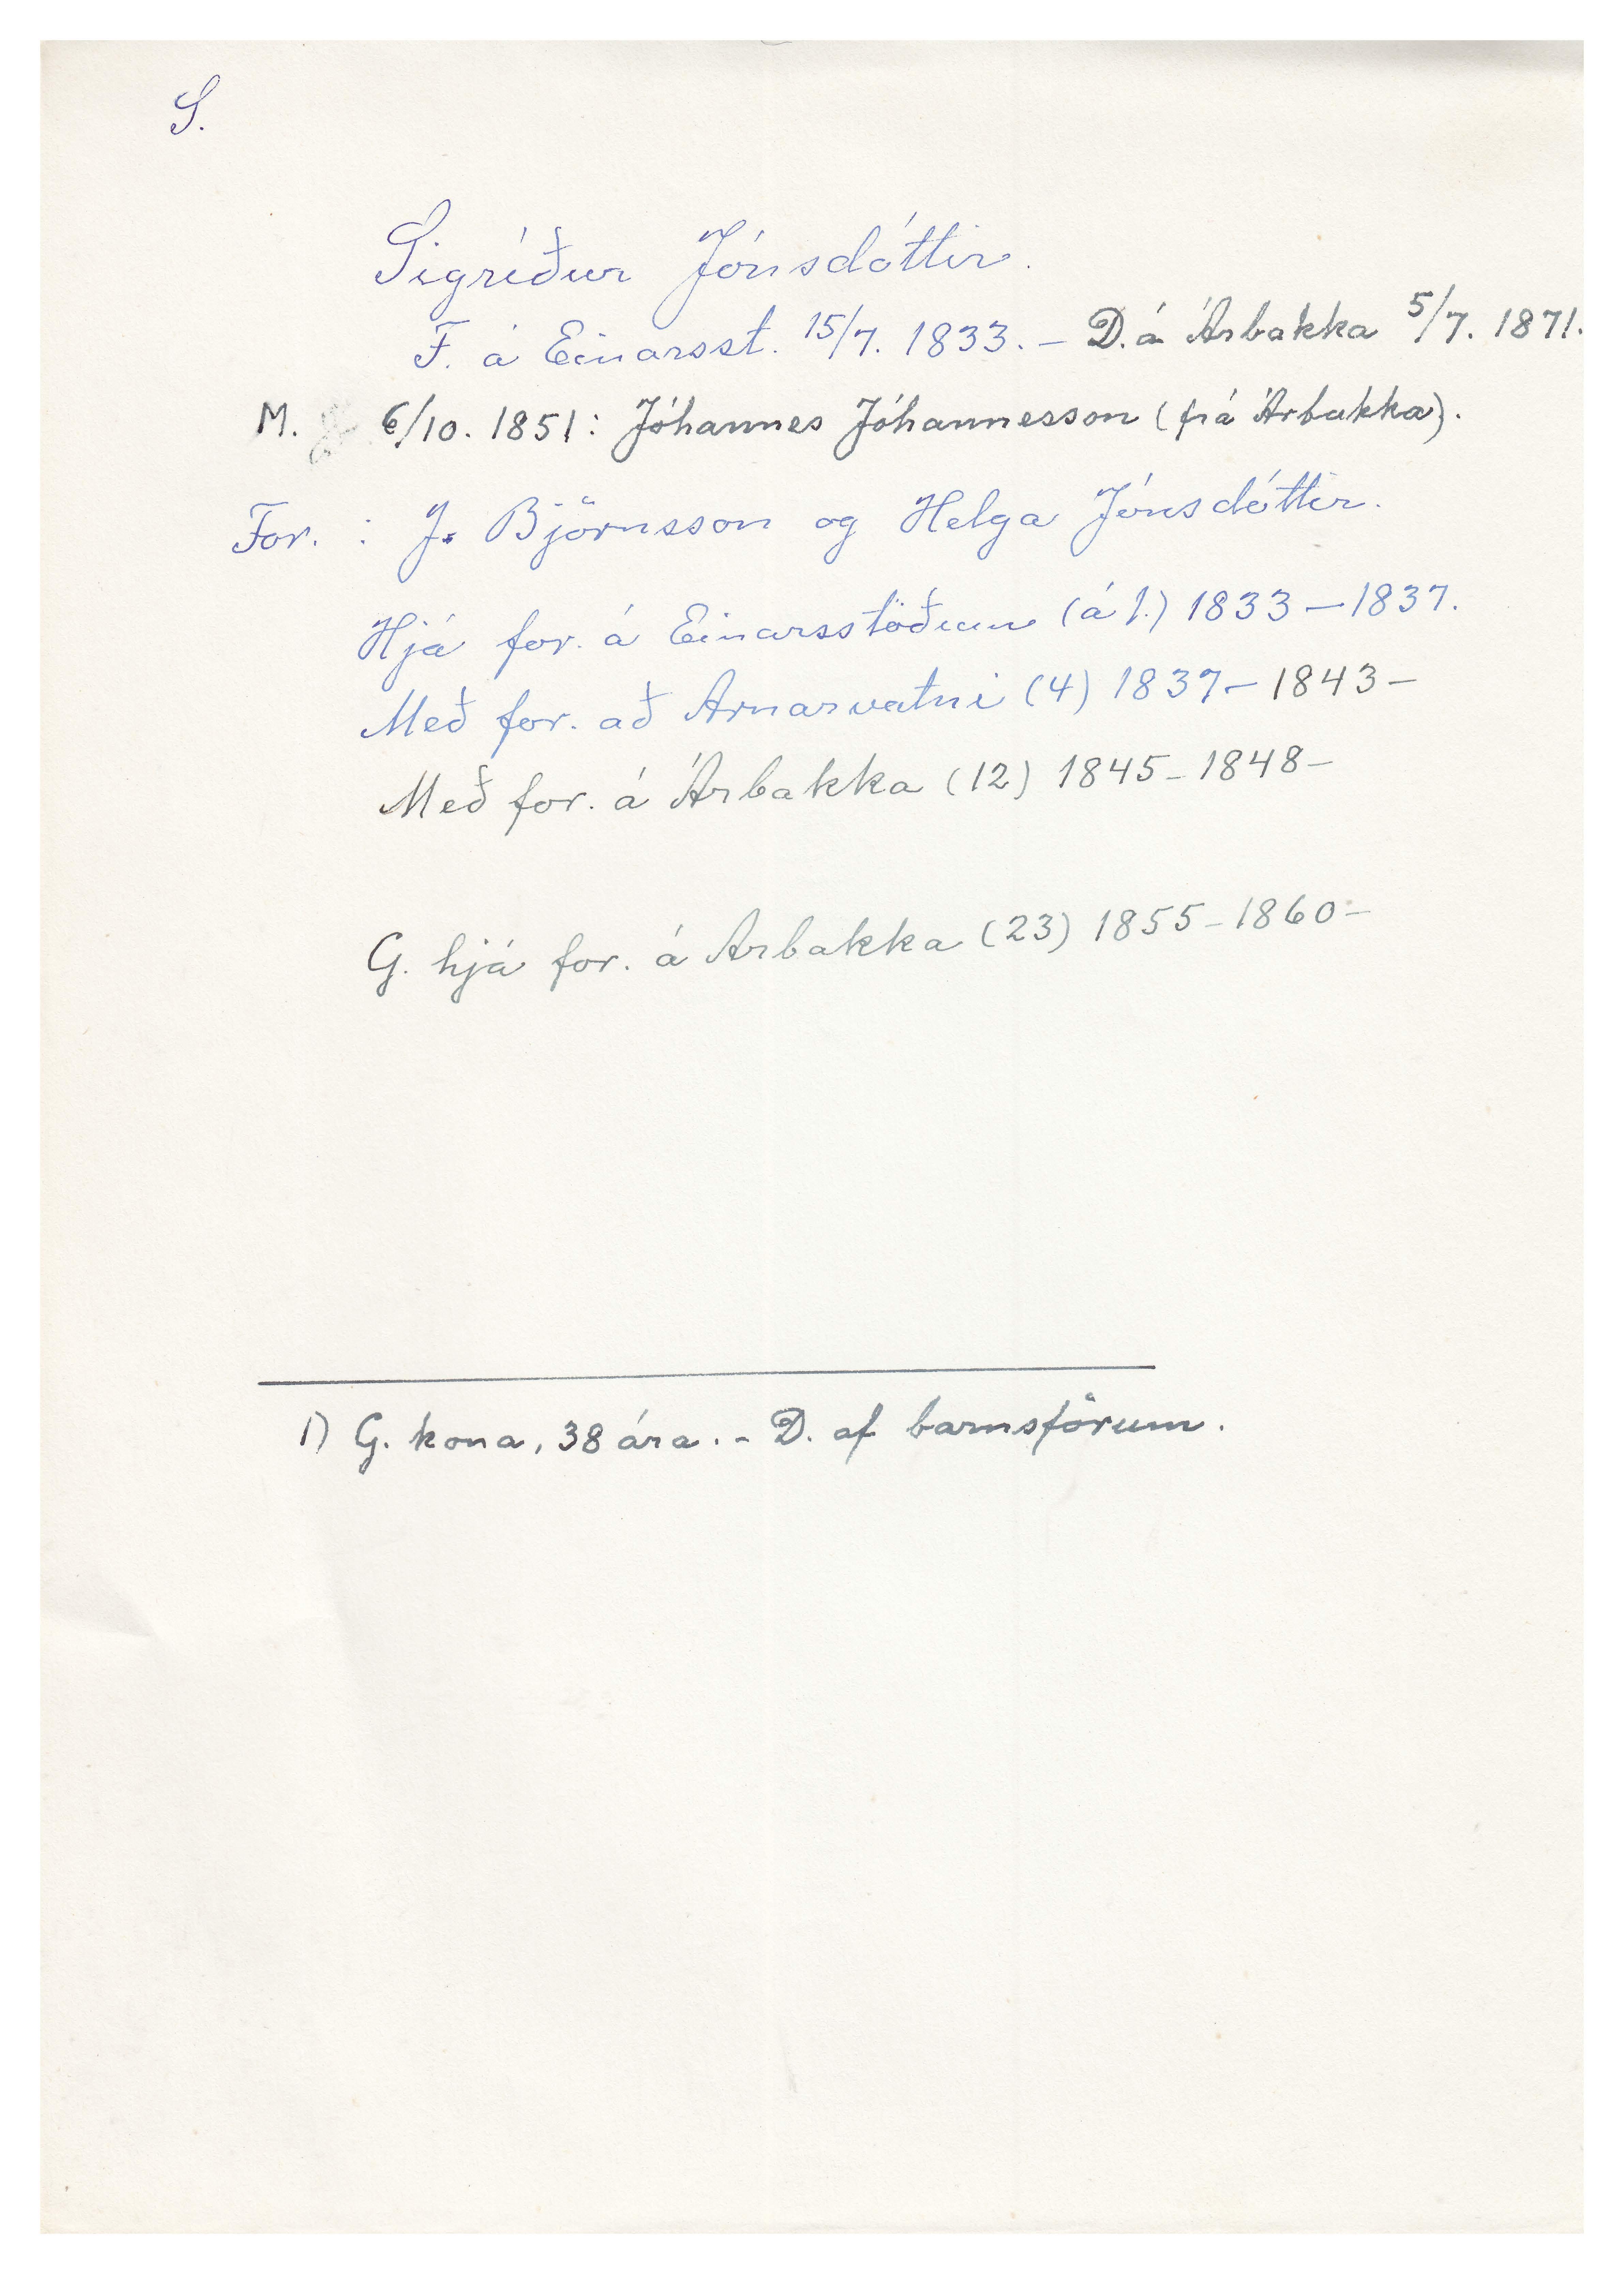 S.
Sigríður Jónsdóttir.
F. á Einarsst. 15/7. 1833. – D. á Árbakka 5/7. 1871.
M. 6/10. 1851: Jóhannes Jóhannesson (frá Árbakka).
For. : J. Björnsson og Helga Jónsdóttir.
Hjá for. á Einarsstöðum (á 1.) 1833–1837.
Með for. að Arnarvatni (4) 1837– 1843–
Með for. á Árbakka (12) 1845–1848–
G. hjá for. á Arbakka (23) 1855–1860–
1) G. kona, 38 ára. - D. af barnsförum.